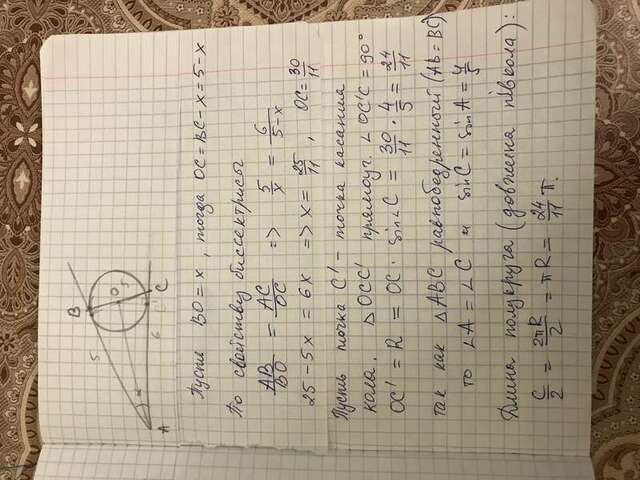 B
5
O
C
C'
6
A
Пусть BO = x, тогда OC = BC - x = 5 - x
По свойству биссектрисы
AB/BO = AC/OC => 5/x = 6/5-x
25 - 5x = 6x => x = 25/11, OC = 30/11
Пусть точка C' - точка касания
кола. △OCC' прямоуг. ∠OC'C = 90°
OC' = R = OC · sin∠C = 30/11 · 4/5 = 24/11
так как △ABC равнобедренный (AB = BC)
то ∠A = ∠C и sinC = sinA = 4/5
Длина полукруга (довжина півкола):
C/2 = 2πR/2 = πR = 24/11 π.